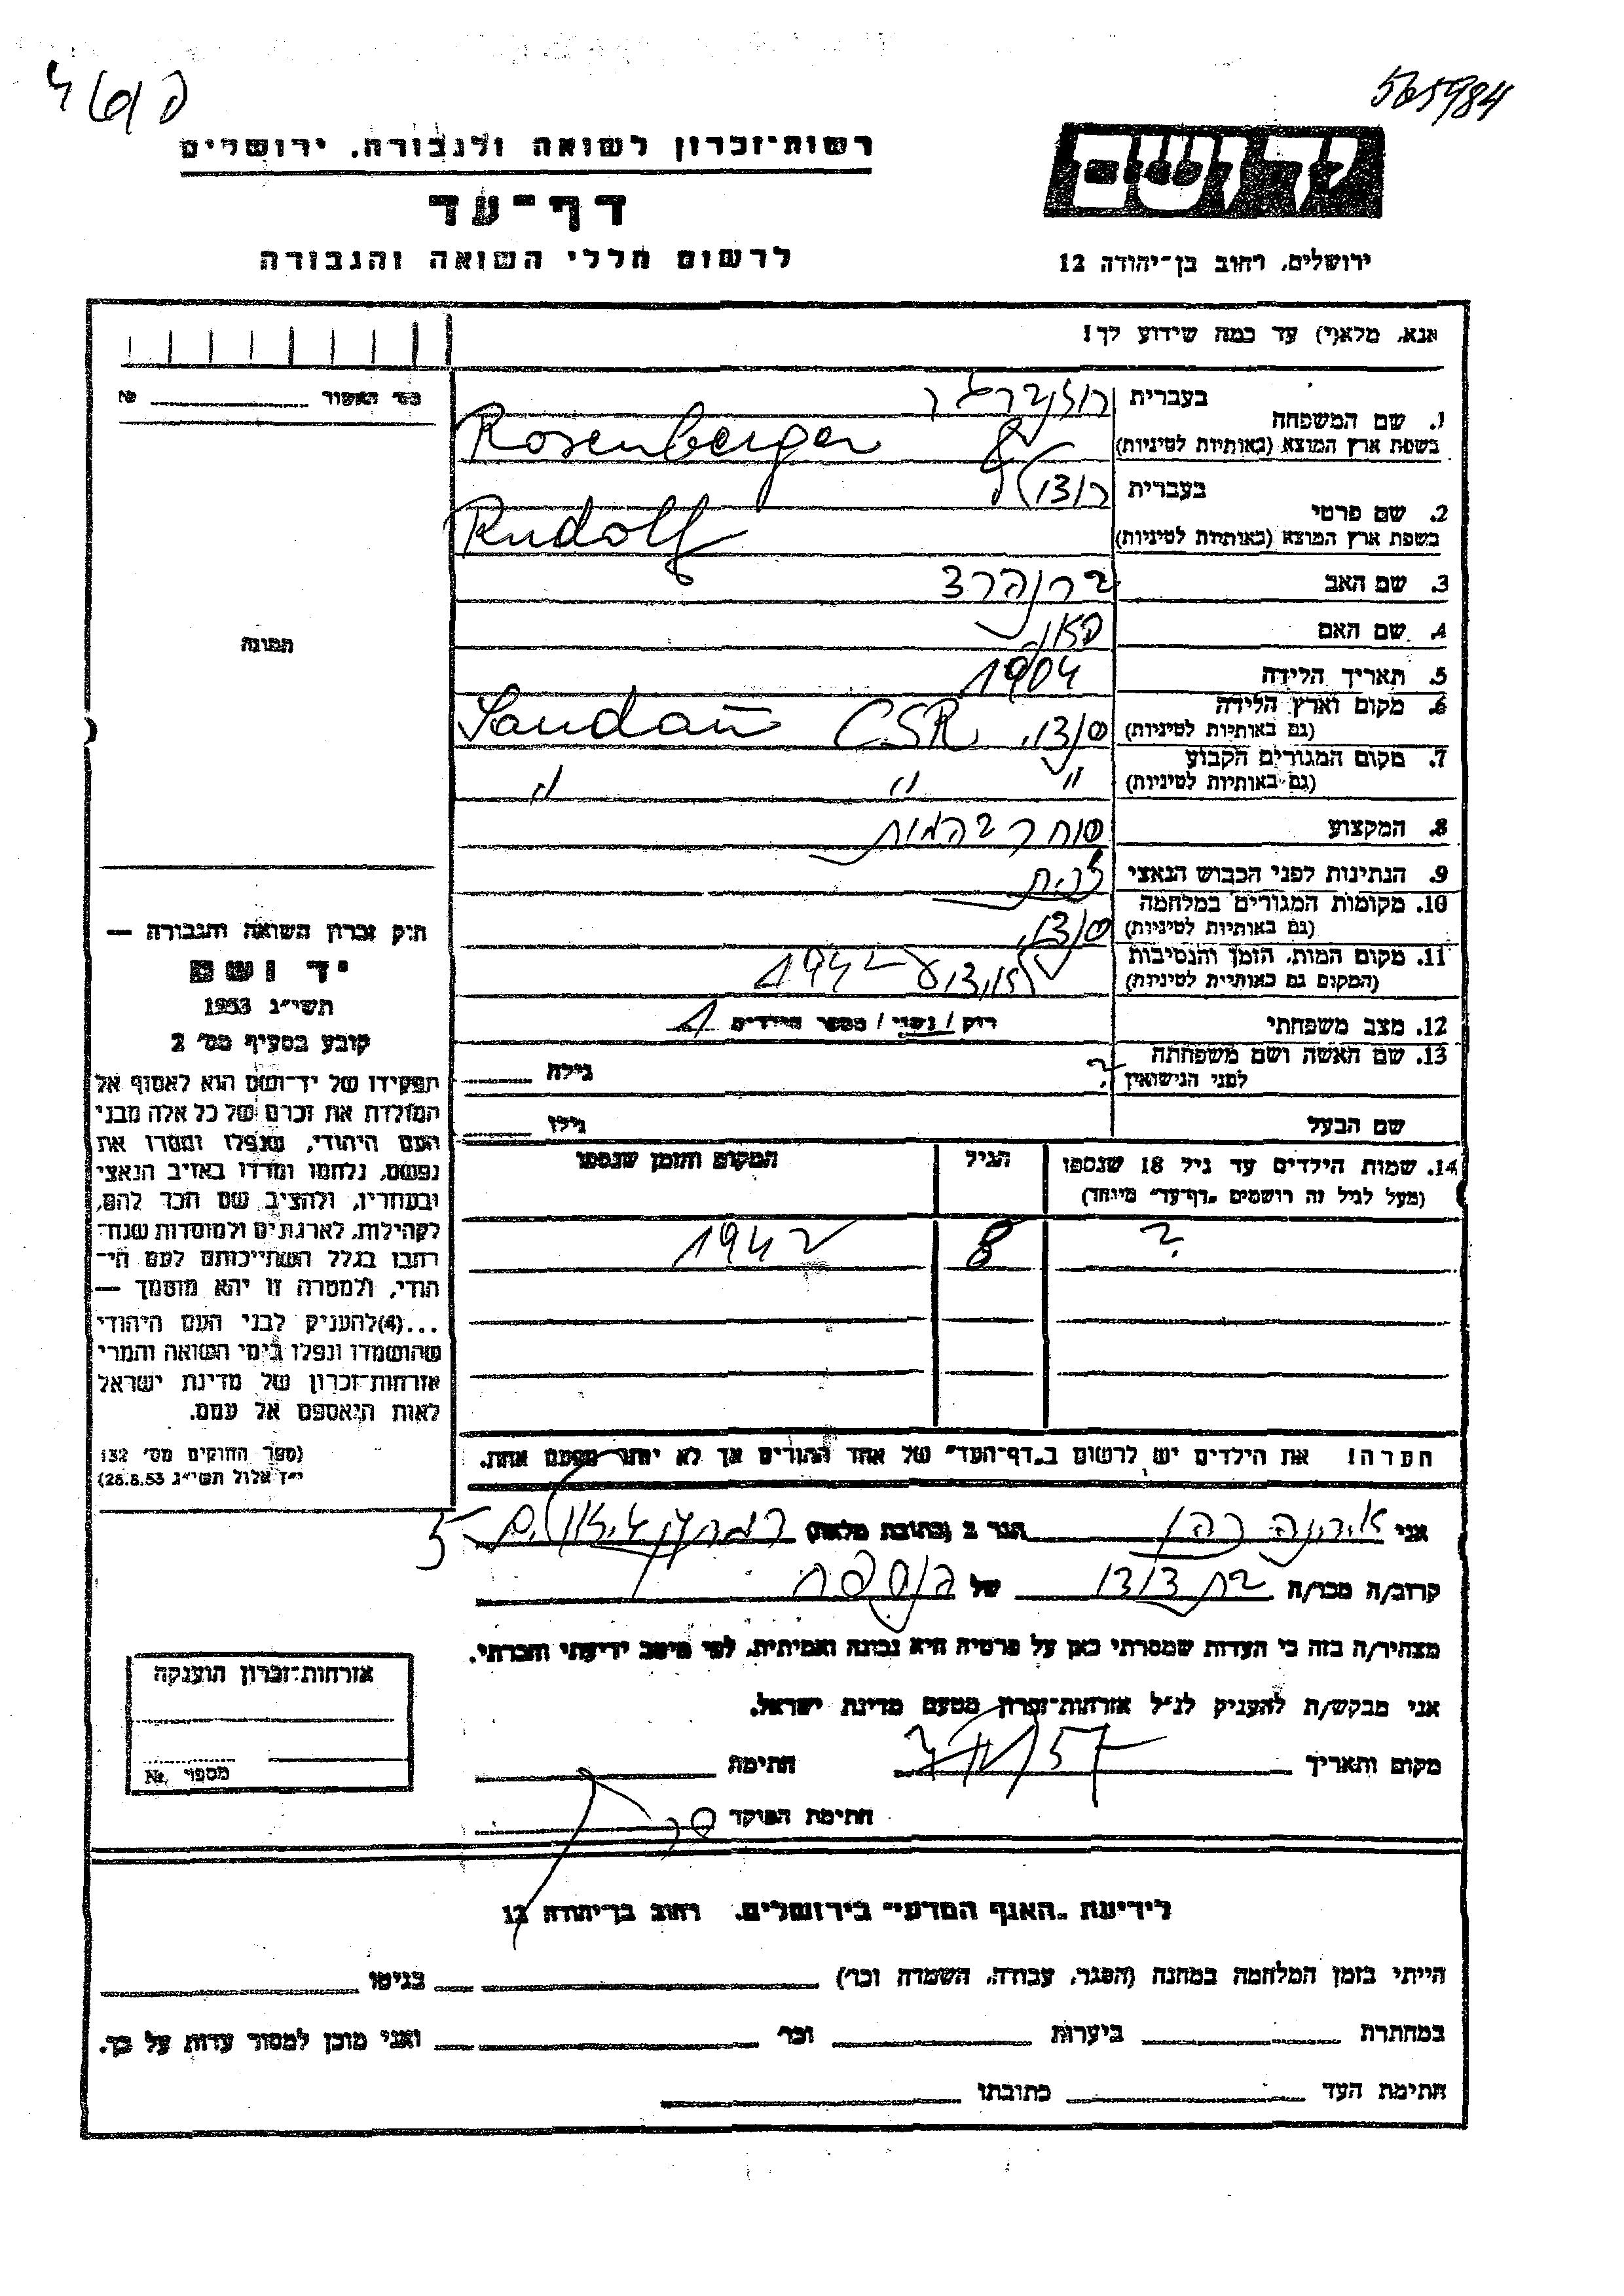 565984
רשות־זכרון לשואה ולגבורה, ירושלים
דף־עד
לרשום חללי השואה והגבורה
יד ושם
ירושלים, רחוב בן־יהודה 12
אנא, מלא(י) עד כמה שידוע לך!
מס' האשור №
תמונה
1. שם המשפחה
בעברית רוזנברגר
בשפת ארץ המוצא (באותיות לטיניות) Rosenberger
2. שם פרטי
בעברית רודולף
בשפת ארץ המוצא (באותיות לטיניות) Rudolf
3. שם האב ברנהרד
4. שם האם
5. תאריך הלידה 1904
6. מקום וארץ הלידה
(גם באותיות לטיניות) CSR
7. מקום המגורים הקבוע
(גם באותיות לטיניות) " " "
8. המקצוע סוחר בהמות
9. הנתינות לפני הכבוש הנאצי
10. מקומות המגורים במלחמה
(גם באותיות לטיניות)
11. מקום המות, הזמן והנסיבות
(המקום גם באותיות לטיניות) 1942
12. מצב משפחתי רוק / נשוי / מספר הילדים 1
13. שם האשה ושם משפחתה
לפני הנישואין ? גילה
שם הבעל גילו
14. שמות הילדים עד גיל 18 שנספו הגיל המקום והזמן שנספו
(מעל לגיל זה רושמים "דף־עד" מיוחד)
? 8 1942
הערה! את הילדים יש לרשום ב"דף־העד" של אחד ההורים אך לא יותר מפעם אחת.
חוק זכרון השואה והגבורה —
יד ושם
תשי"ג 1953
קובע בסעיף מס' 2
תפקידו של יד־ושם הוא לאסוף אל
המולדת את זכרם של כל אלה מבני
העם היהודי, שנפלו ומסרו את
נפשם, נלחמו ומרדו באויב הנאצי
ובעוזריו, ולהציב שם וזכר להם,
לקהילות, לארגונים ולמוסדות שנח־
רבו בגלל השתייכותם לעם הי־
הודי, ולמטרה זו יהא מוסמך —
...(4) להעניק לבני העם היהודי
שהושמדו ונפלו בימי השואה והמרי
אזרחות־זכרון של מדינת ישראל
לאות היאספם אל עמם.
(ספר החוקים מס' 132
י"ז אלול תשי"ג 28.8.53)
אני הגר ב (כתובת מלאה) 5
קרוב/ה מכר/ה בת דודו של הנספה
מצהיר/ה בזה כי העדות שמסרתי כאן על פרטיה היא נכונה ואמיתית, לפי מיטב ידיעתי והכרתי.
אני מבקש/ת להעניק לנ"ל אזרחות־זכרון מטעם מדינת ישראל.
מקום ותאריך 57 חתימה
חתימת הפוקד
אזרחות־זכרון הוענקה
מספר №
לידיעת "האגף המדעי" בירושלים, רחוב בן־יהודה 12
הייתי בזמן המלחמה במחנה (הסגר, עבודה, השמדה וכו') בגיטו
במחתרת ביערות וכו' ואני מוכן למסור עדות על כך.
חתימת העד כתובתו